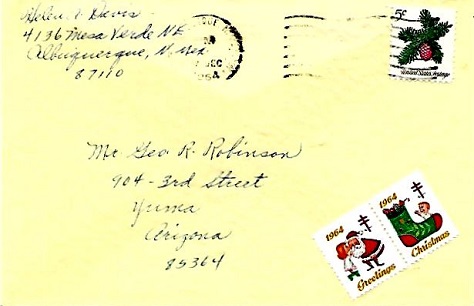 Helen L Davis
4136 Mesa Verde NE
Albuquerque, N. Mex
87110
DEC
5¢
United States Postage
Mr. Geo R. Robinson
904-3rd Street
Yuma
Arizona
85364
1964
Greetings
1964
Christmas